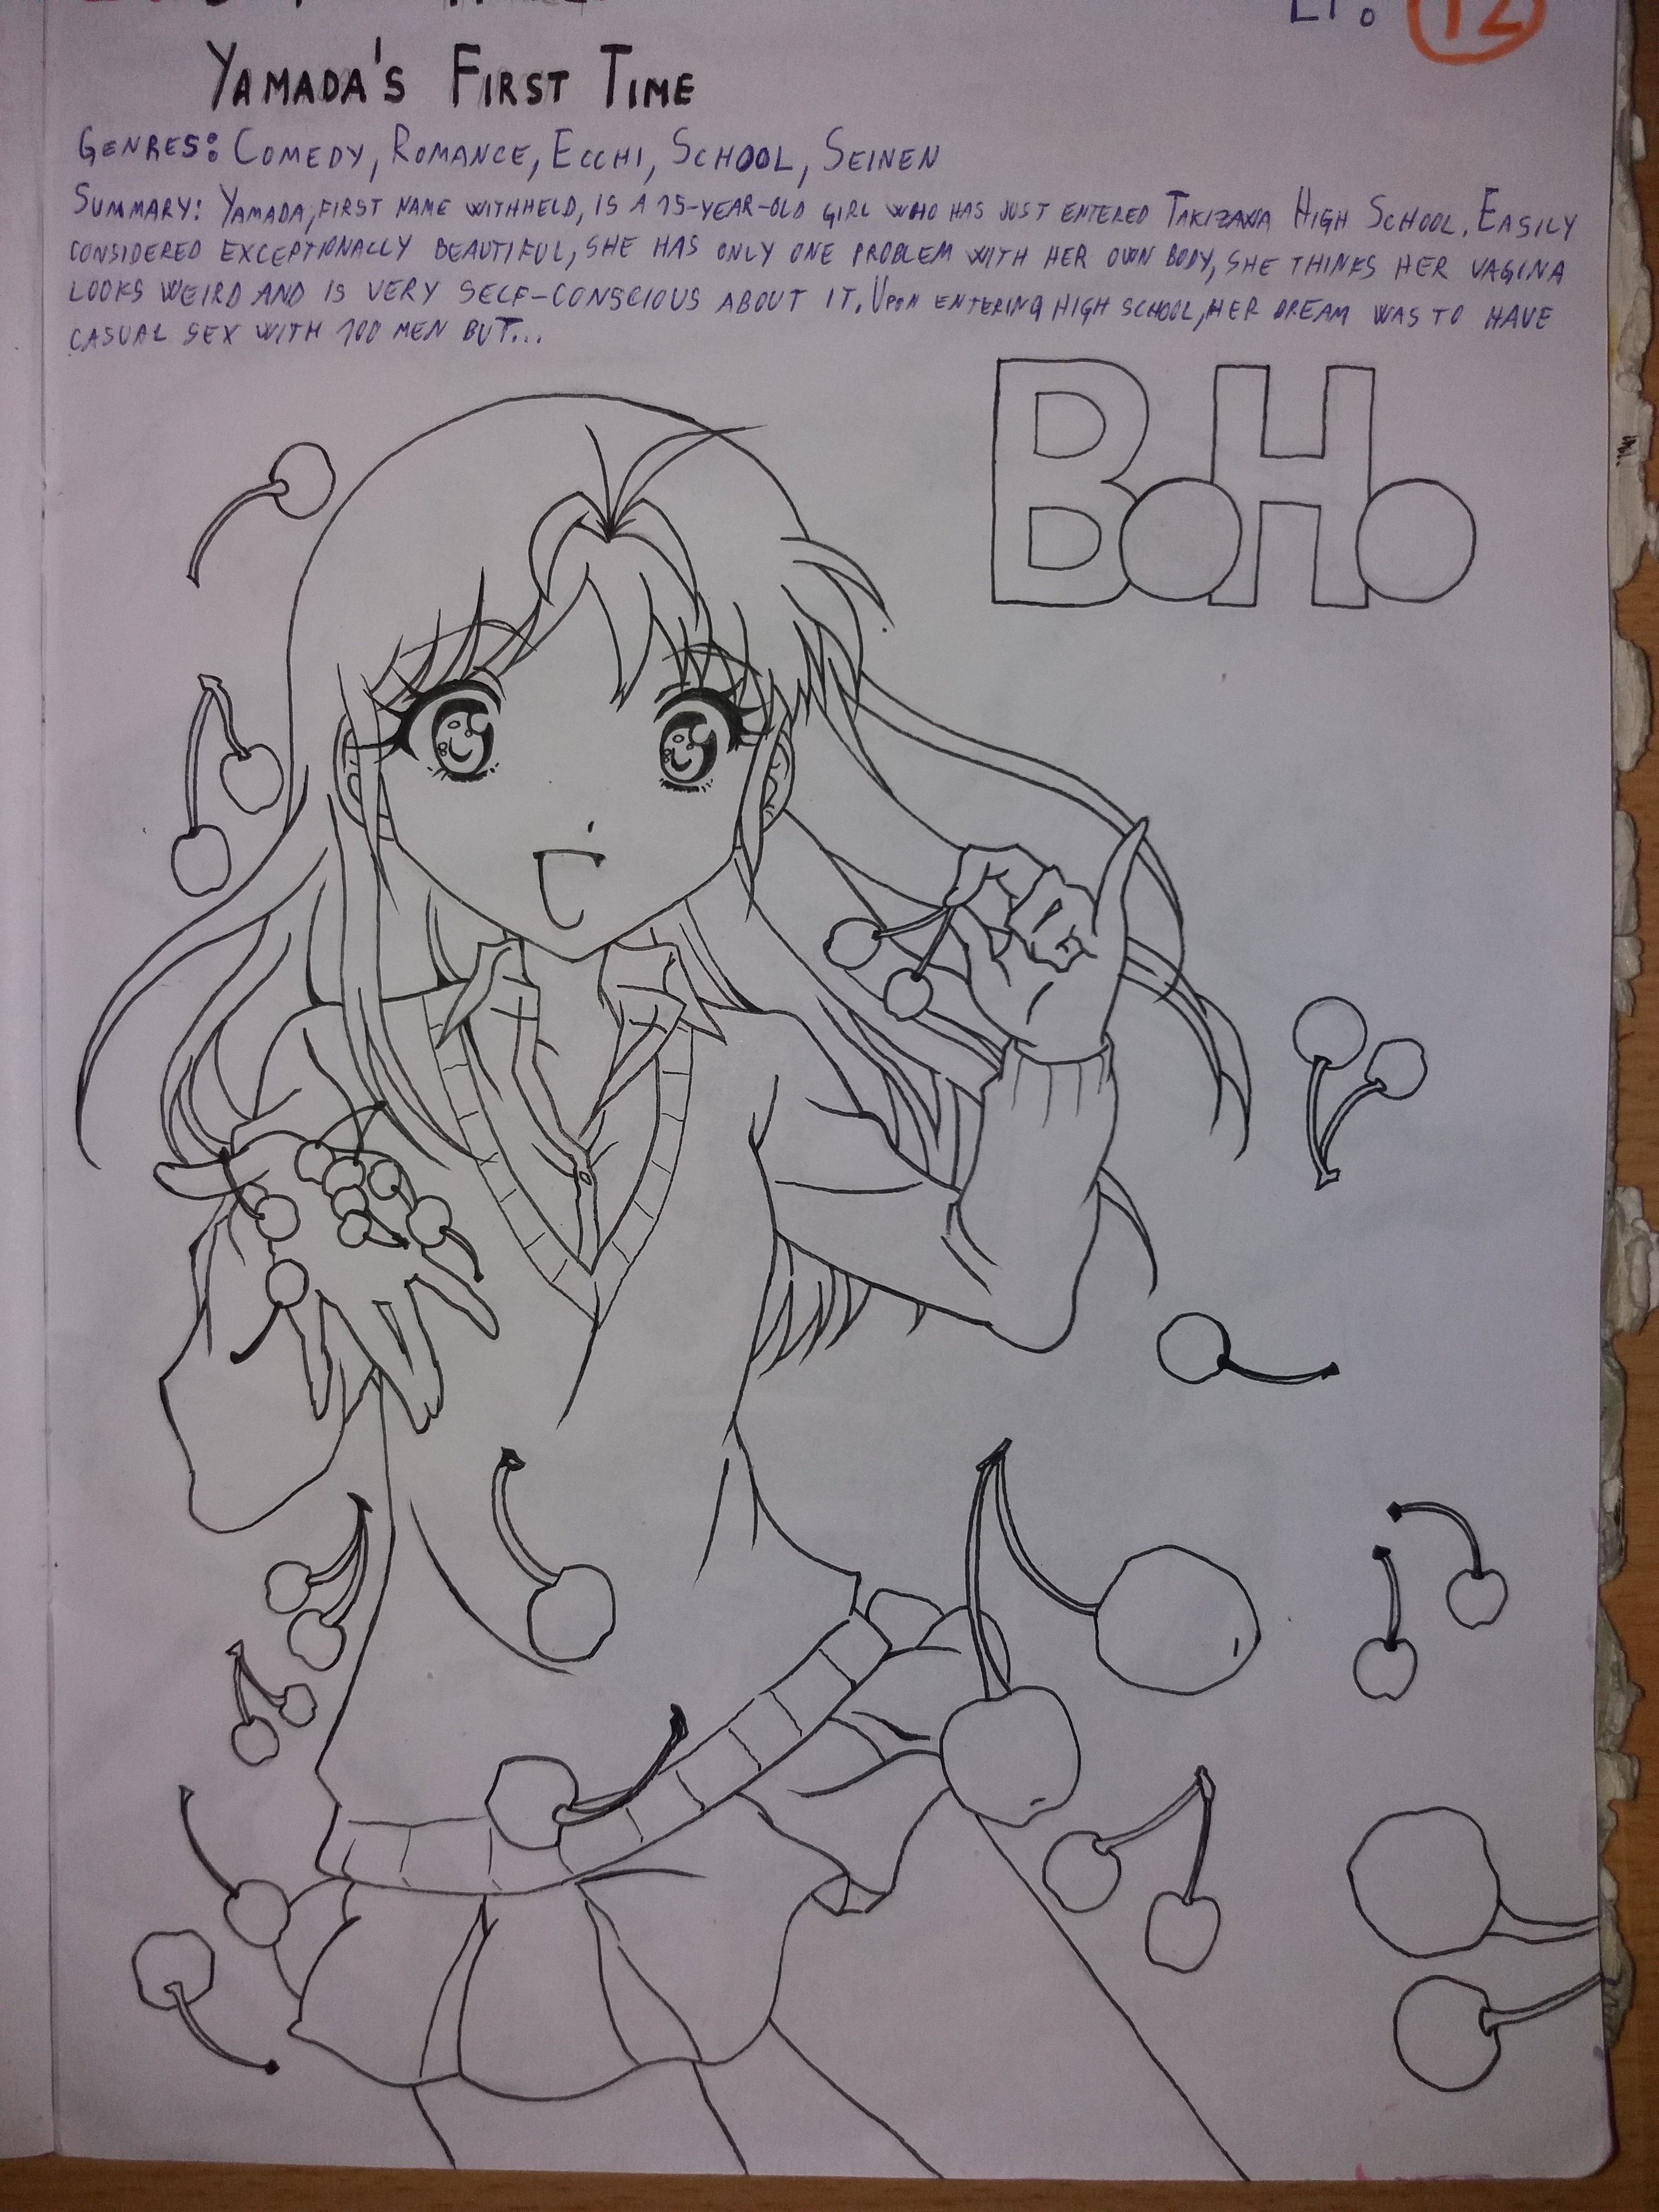 Ep. 12
YAMADA'S FIRST TIME
GENRES: COMEDY, ROMANCE, ECCHI, SCHOOL, SEINEN
SUMMARY: YAMADA, FIRST NAME WITHHELD, IS A 15-YEAR-OLD GIRL WHO HAS JUST ENTERED TAKIZAWA HIGH SCHOOL. EASILY
CONSIDERED EXCEPTIONALLY BEAUTIFUL, SHE HAS ONLY ONE PROBLEM WITH HER OWN BODY, SHE THINKS HER VAGINA
LOOKS WEIRD AND IS VERY SELF-CONSCIOUS ABOUT IT. UPON ENTERING HIGH SCHOOL, HER DREAM WAS TO HAVE
CASUAL SEX WITH 100 MEN BUT...
BOHO